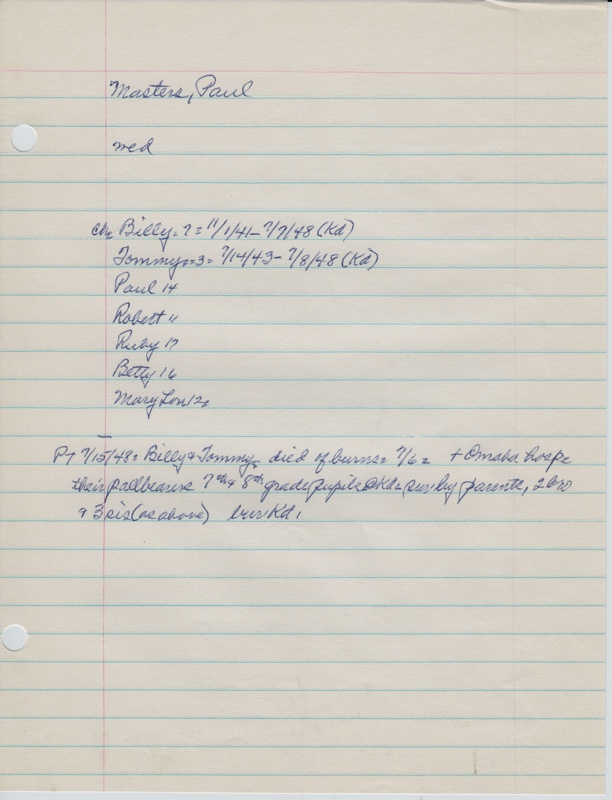 Masters, Paul
med
chn Billy = 7 = 11/1/41 - 7/7/48 (Kd)
Tommy = 3 = 7/14/43 - 7/8/48 (Kd)
Paul 14
Robert 11
Ruby 17
Betty 16
Mary Lou 12
PT 7/15/48 = Billy & Tommy = died of burns = 7/6 = + Omaha hosp
their pallbearers 7th & 8th grade pupils @ Kd = sur by parents, 2 bro
& 3 sis (as above) bur Kd.